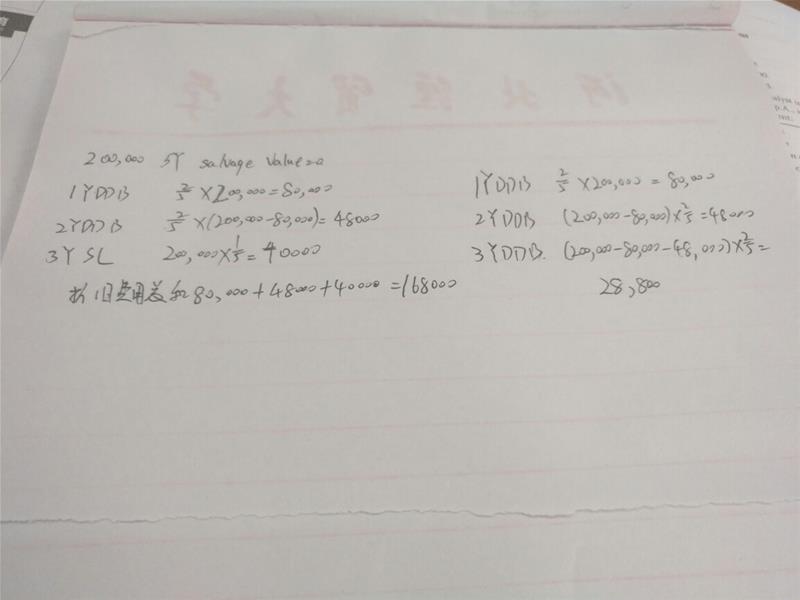 200,000 5Y salvage value=0
1YDDB 2/5 ×200,000=80,000
2YDDB 2/5 ×(200,000-80,000)=48000
3Y SL 200,000×1/5=40000
折旧费用总和80,000+48000+40000=168000
1YDDB 2/5 ×200,000=80,000
2YDDB (200,000-80,000)×2/5=48000
3YDDB. (200,000-80,000-48,000)×2/5=
28,800